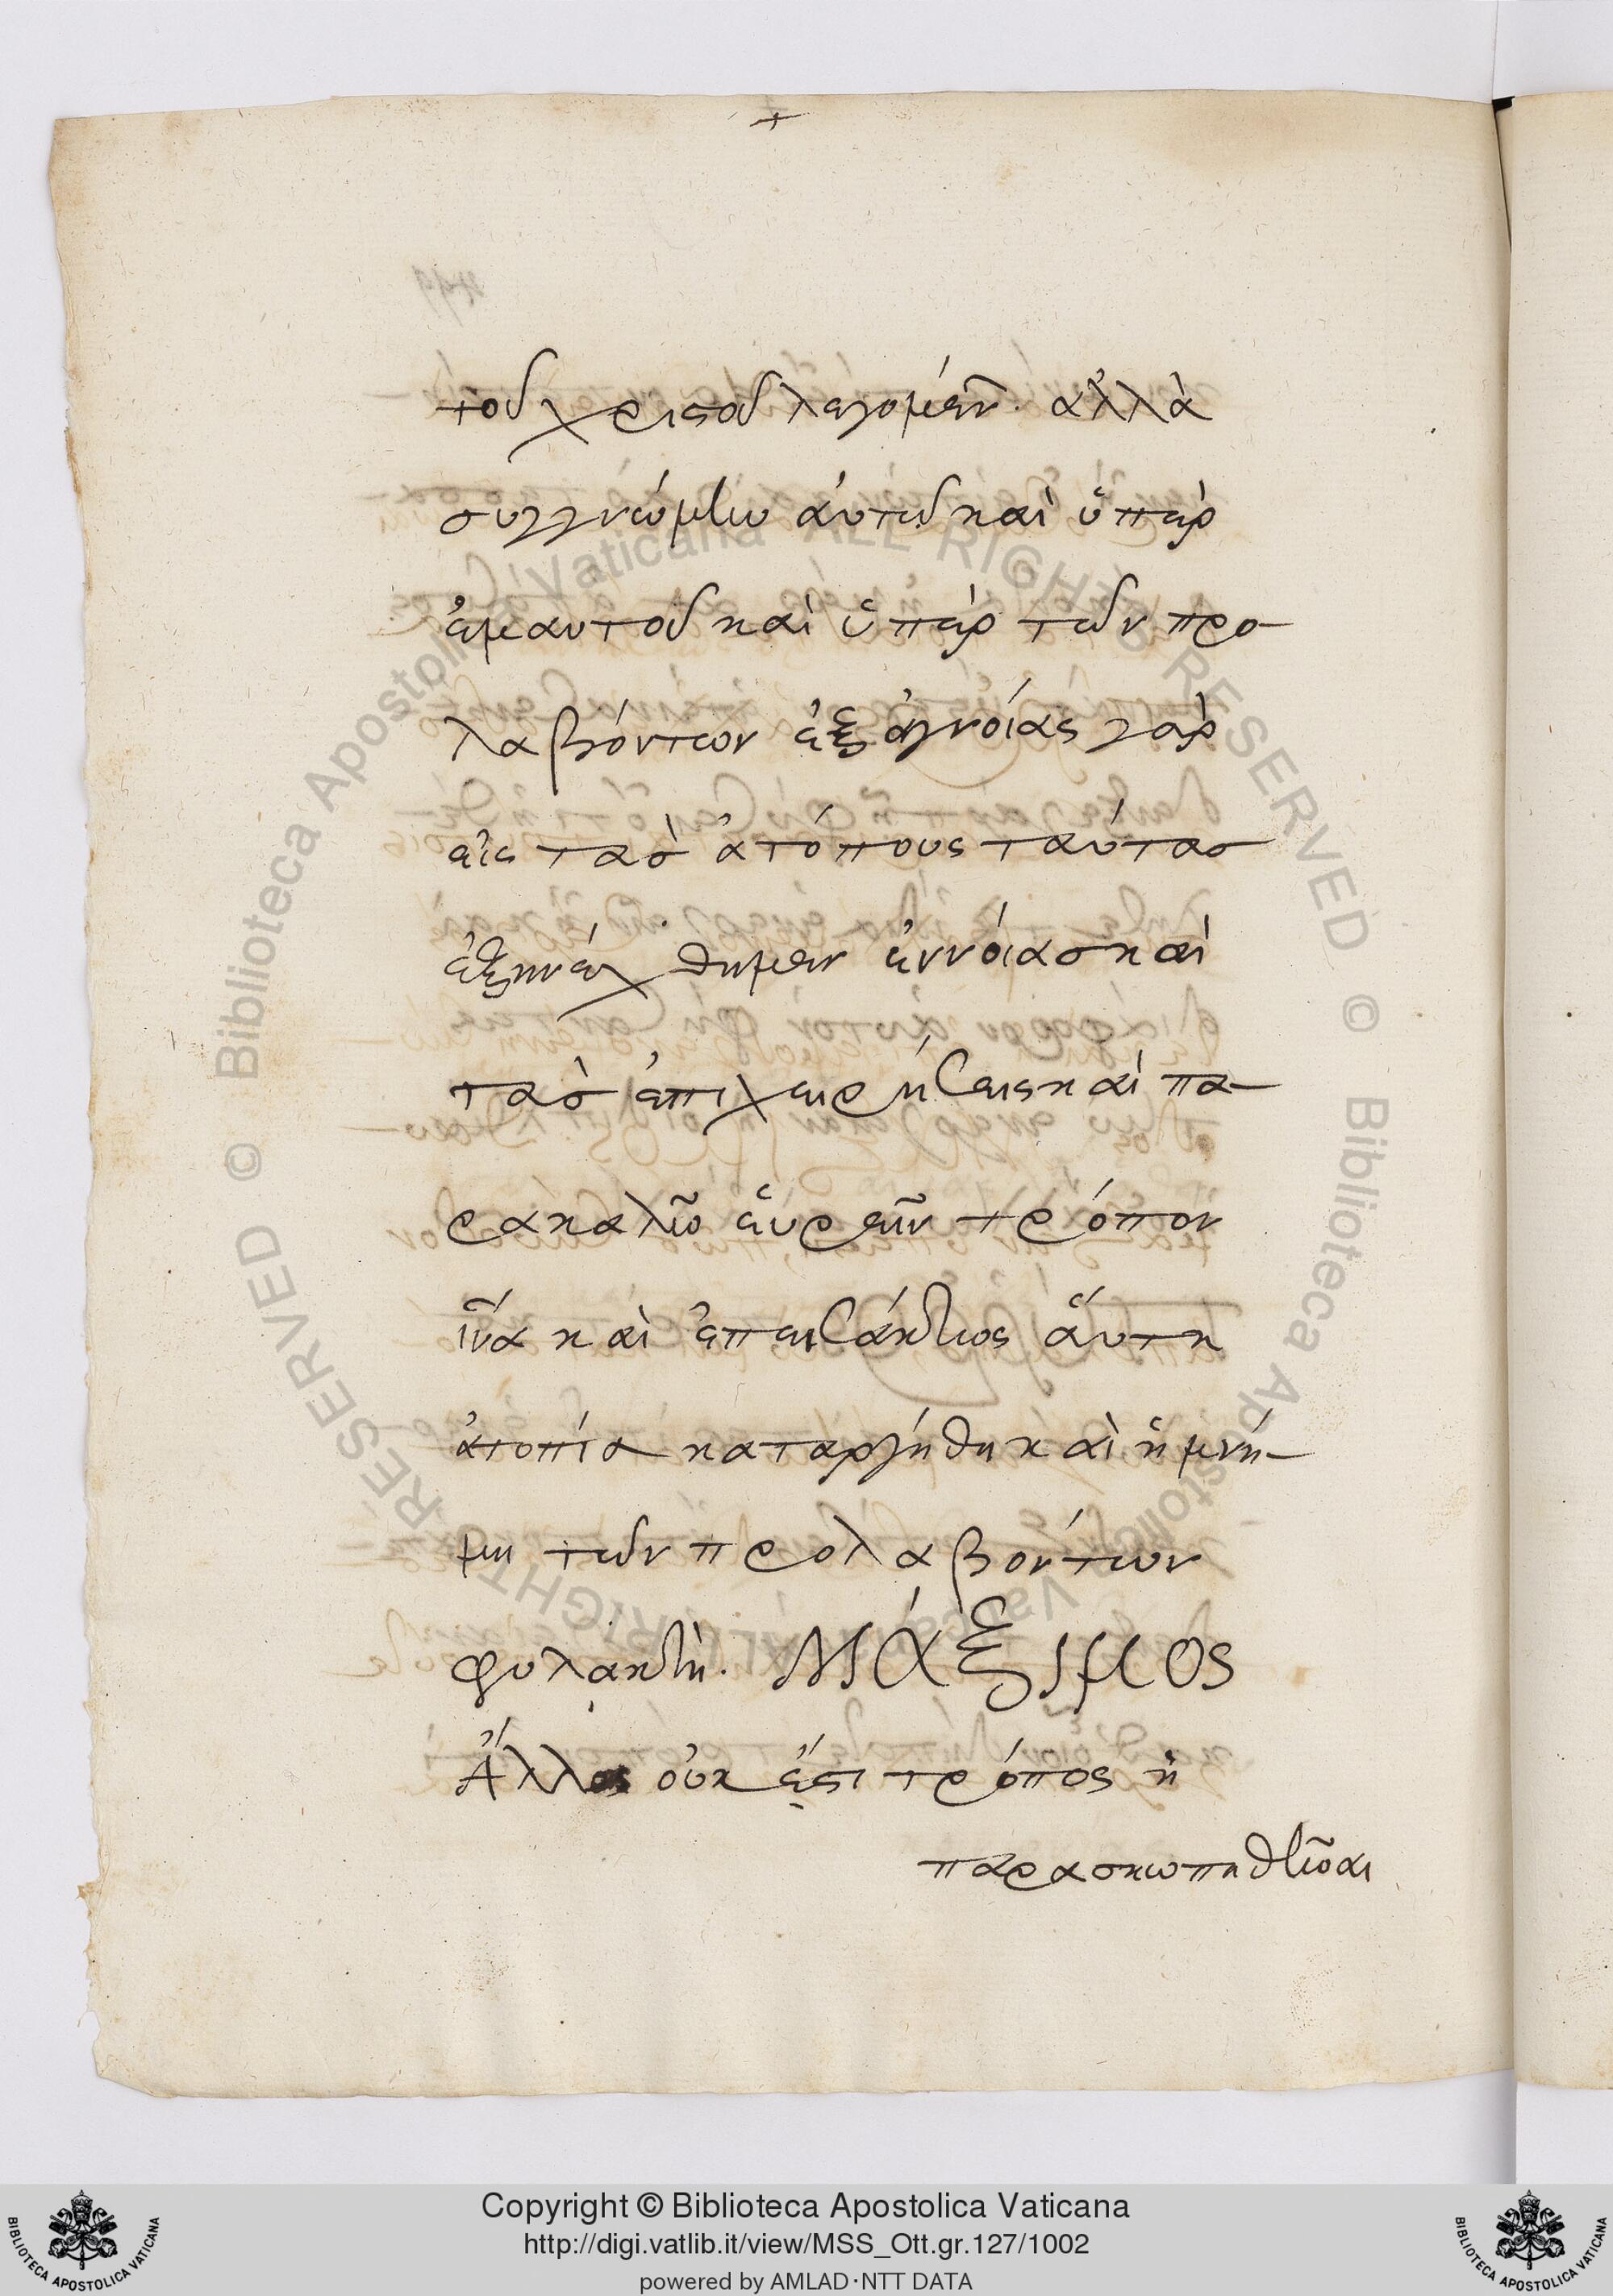 τοῦ χριστοῦ λεγομένην. ἀλλὰ
συγγνώμην αὐτῶ καὶ ὑπὲρ
ἐμαυτοῦ καὶ ὑπὲρ τῶν προ-
λαβόντων ἐξ ἀγνοίας γὰρ
εἰς τὰσ ἀτόπους ταύτασ
ἐξηνέχθημεν ἐννοίασ καὶ
τὰσ ἐπιχειρήσεις καὶ πα-
ρακαλῶ εὑρεῖν τρόπον
ἵνα καὶ ἐπείσακτος αὕτη
ἀτοπία καταργήθη καὶ ἡ μνή-
μη τῶν προλαβόντων
φυλάχθη. ΜΆΞΙΜΟΣ
Ἄλλος οὐκ ἔστι τρόπος ἢ
παρασιωπηθῆναι
© Biblioteca Apostolica Vaticana ALL RIGHTS RESERVED © Biblioteca Apostolica Vaticana ALL RIGHTS RESERVED
BIBLIOTECA APOSTOLICA VATICANA
Copyright © Biblioteca Apostolica Vaticana
http://digi.vatlib.it/view/MSS_Ott.gr.127/1002
powered by AMLAD·NTT DATA
BIBLIOTECA APOSTOLICA VATICANA